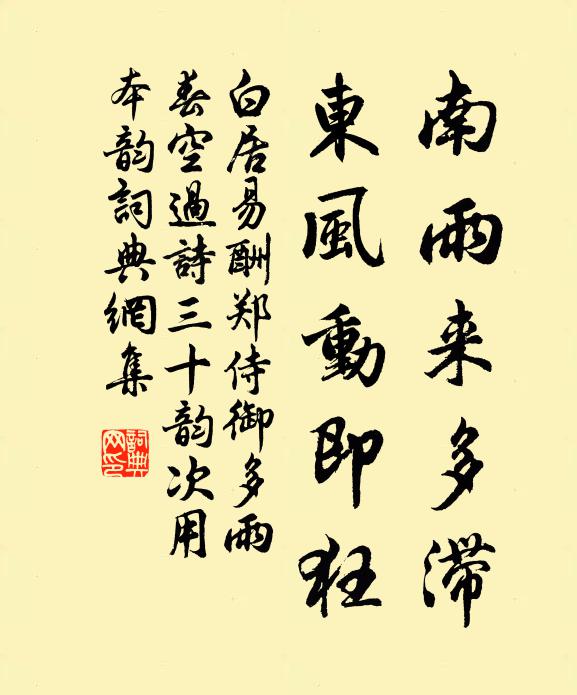 南雨来多滞
東風動即狂
白居易酬郑侍御多雨
春空過詩三十韵次用
本韵詞典網集
詞典网印